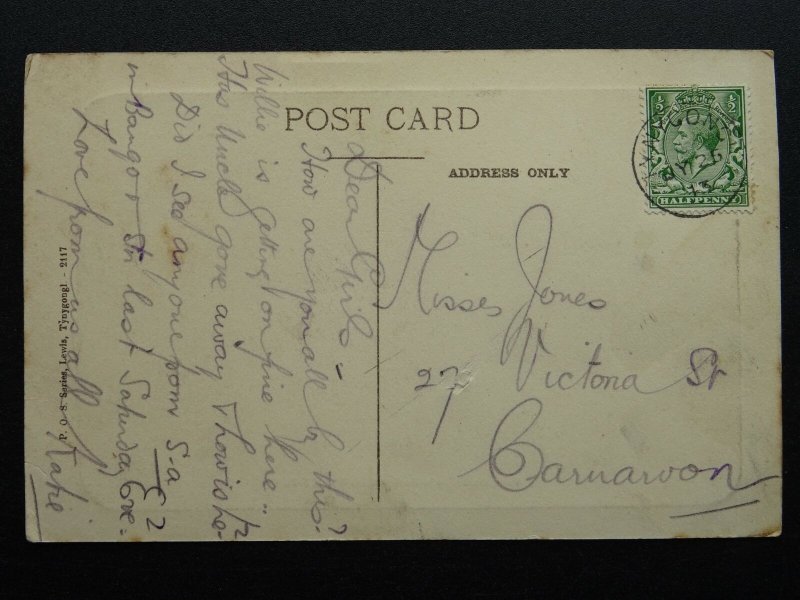 POST CARD
ADDRESS ONLY
½ ½
HALFPENNY
TYNYGONGL
MY 26
13
Dear Girls –
How are you all by this?
Willie is getting on fine here..
Has Uncle gone away & how is he?
Did I see anyone from S-a
in Bangor Stn last Saturday Eve?
Love from us all
Katie
Misses Jones
27 Victoria St
Carnarvon
P. O. S. Series, Lewis, Tynygongl - 2117